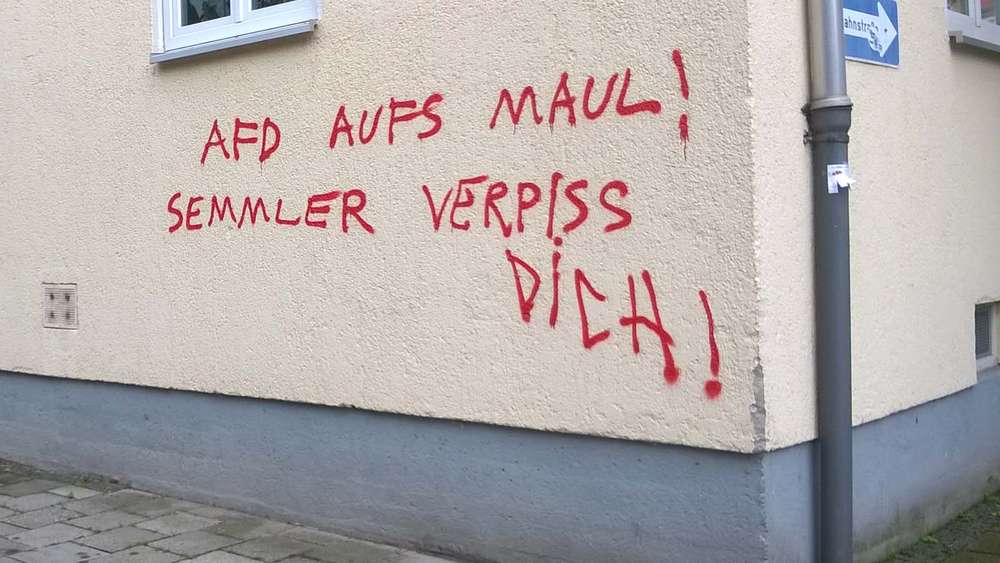 AFD AUFS MAUL!
SEMMLER VERPISS
DICH!
ahnstraße